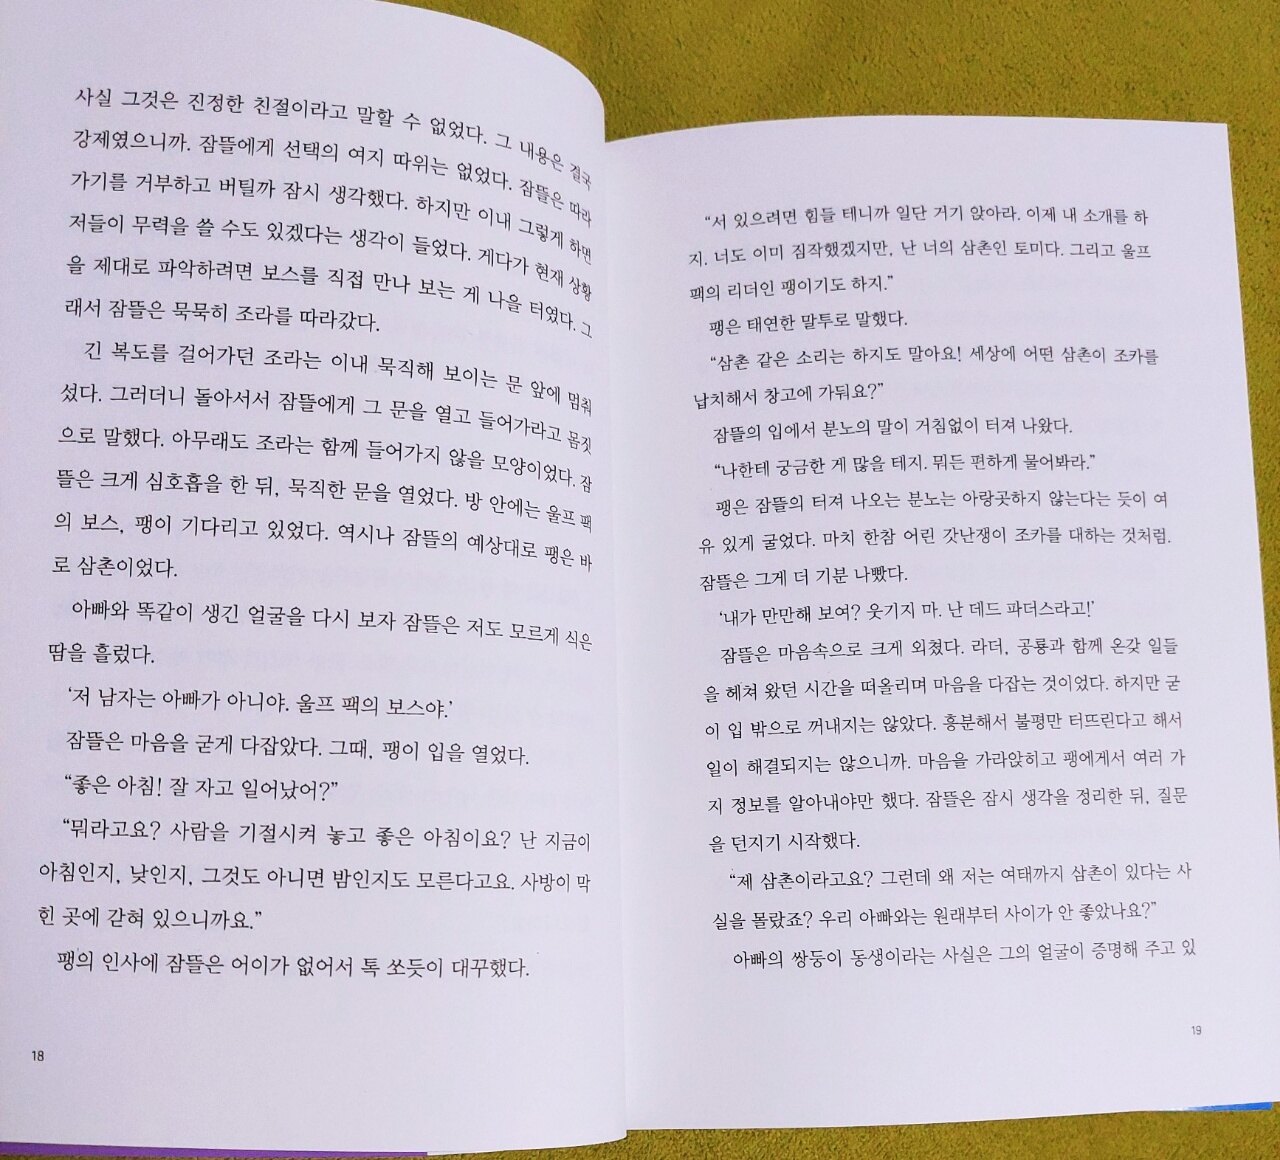 사실 그것은 진정한 친절이라고 말할 수 없었다. 그 내용은 결국
강제였으니까. 잠뜰에게 선택의 여지 따위는 없었다. 잠뜰은 따라
가기를 거부하고 버틸까 잠시 생각했다. 하지만 이내 그렇게 하면
저들이 무력을 쓸 수도 있겠다는 생각이 들었다. 게다가 현재 상황
을 제대로 파악하려면 보스를 직접 만나 보는 게 나을 터였다. 그
래서 잠뜰은 묵묵히 조라를 따라갔다.
긴 복도를 걸어가던 조라는 이내 묵직해 보이는 문 앞에 멈춰
섰다. 그러더니 돌아서서 잠뜰에게 그 문을 열고 들어가라고 몸짓
으로 말했다. 아무래도 조라는 함께 들어가지 않을 모양이었다. 잠
뜰은 크게 심호흡을 한 뒤, 묵직한 문을 열었다. 방 안에는 울프 팩
의 보스, 팽이 기다리고 있었다. 역시나 잠뜰의 예상대로 팽은 바
로 삼촌이었다.
아빠와 똑같이 생긴 얼굴을 다시 보자 잠뜰은 저도 모르게 식은
땀을 흘렸다.
‘저 남자는 아빠가 아니야. 울프 팩의 보스야.’
잠뜰은 마음을 굳게 다잡았다. 그때, 팽이 입을 열었다.
“좋은 아침! 잘 자고 일어났어?”
“뭐라고요? 사람을 기절시켜 놓고 좋은 아침이요? 난 지금이
아침인지, 낮인지, 그것도 아니면 밤인지도 모른다고요. 사방이 막
힌 곳에 갇혀 있으니까요.”
팽의 인사에 잠뜰은 어이가 없어서 톡 쏘듯이 대꾸했다.
18
“서 있으려면 힘들 테니까 일단 거기 앉아라. 이제 내 소개를 하
지. 너도 이미 짐작했겠지만, 난 너의 삼촌인 토미다. 그리고 울프
팩의 리더인 팽이기도 하지.”
팽은 태연한 말투로 말했다.
“삼촌 같은 소리는 하지도 말아요! 세상에 어떤 삼촌이 조카를
납치해서 창고에 가둬요?”
잠뜰의 입에서 분노의 말이 거침없이 터져 나왔다.
“나한테 궁금한 게 많을 테지. 뭐든 편하게 물어봐라.”
팽은 잠뜰의 터져 나오는 분노는 아랑곳하지 않는다는 듯이 여
유 있게 굴었다. 마치 한참 어린 갓난쟁이 조카를 대하는 것처럼.
잠뜰은 그게 더 기분 나빴다.
‘내가 만만해 보여? 웃기지 마. 난 데드 파더스라고!’
잠뜰은 마음속으로 크게 외쳤다. 라더, 공룡과 함께 온갖 일들
을 헤쳐 왔던 시간을 떠올리며 마음을 다잡는 것이었다. 하지만 굳
이 입 밖으로 꺼내지는 않았다. 흥분해서 불평만 터뜨린다고 해서
일이 해결되지는 않으니까. 마음을 가라앉히고 팽에게서 여러 가
지 정보를 알아내야만 했다. 잠뜰은 잠시 생각을 정리한 뒤, 질문
을 던지기 시작했다.
“제 삼촌이라고요? 그런데 왜 저는 여태까지 삼촌이 있다는 사
실을 몰랐죠? 우리 아빠와는 원래부터 사이가 안 좋았나요?”
아빠의 쌍둥이 동생이라는 사실은 그의 얼굴이 증명해 주고 있
19